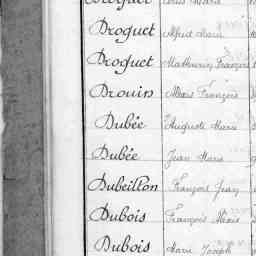 Droguet Alfred Marie
Droguet Mathurin François
Drouin Alexis François
Dubée Auguste Marie
Dubée Jean Marie
Dubeillon François Jean
Dubois François Alexis
Dubois Marie Joseph